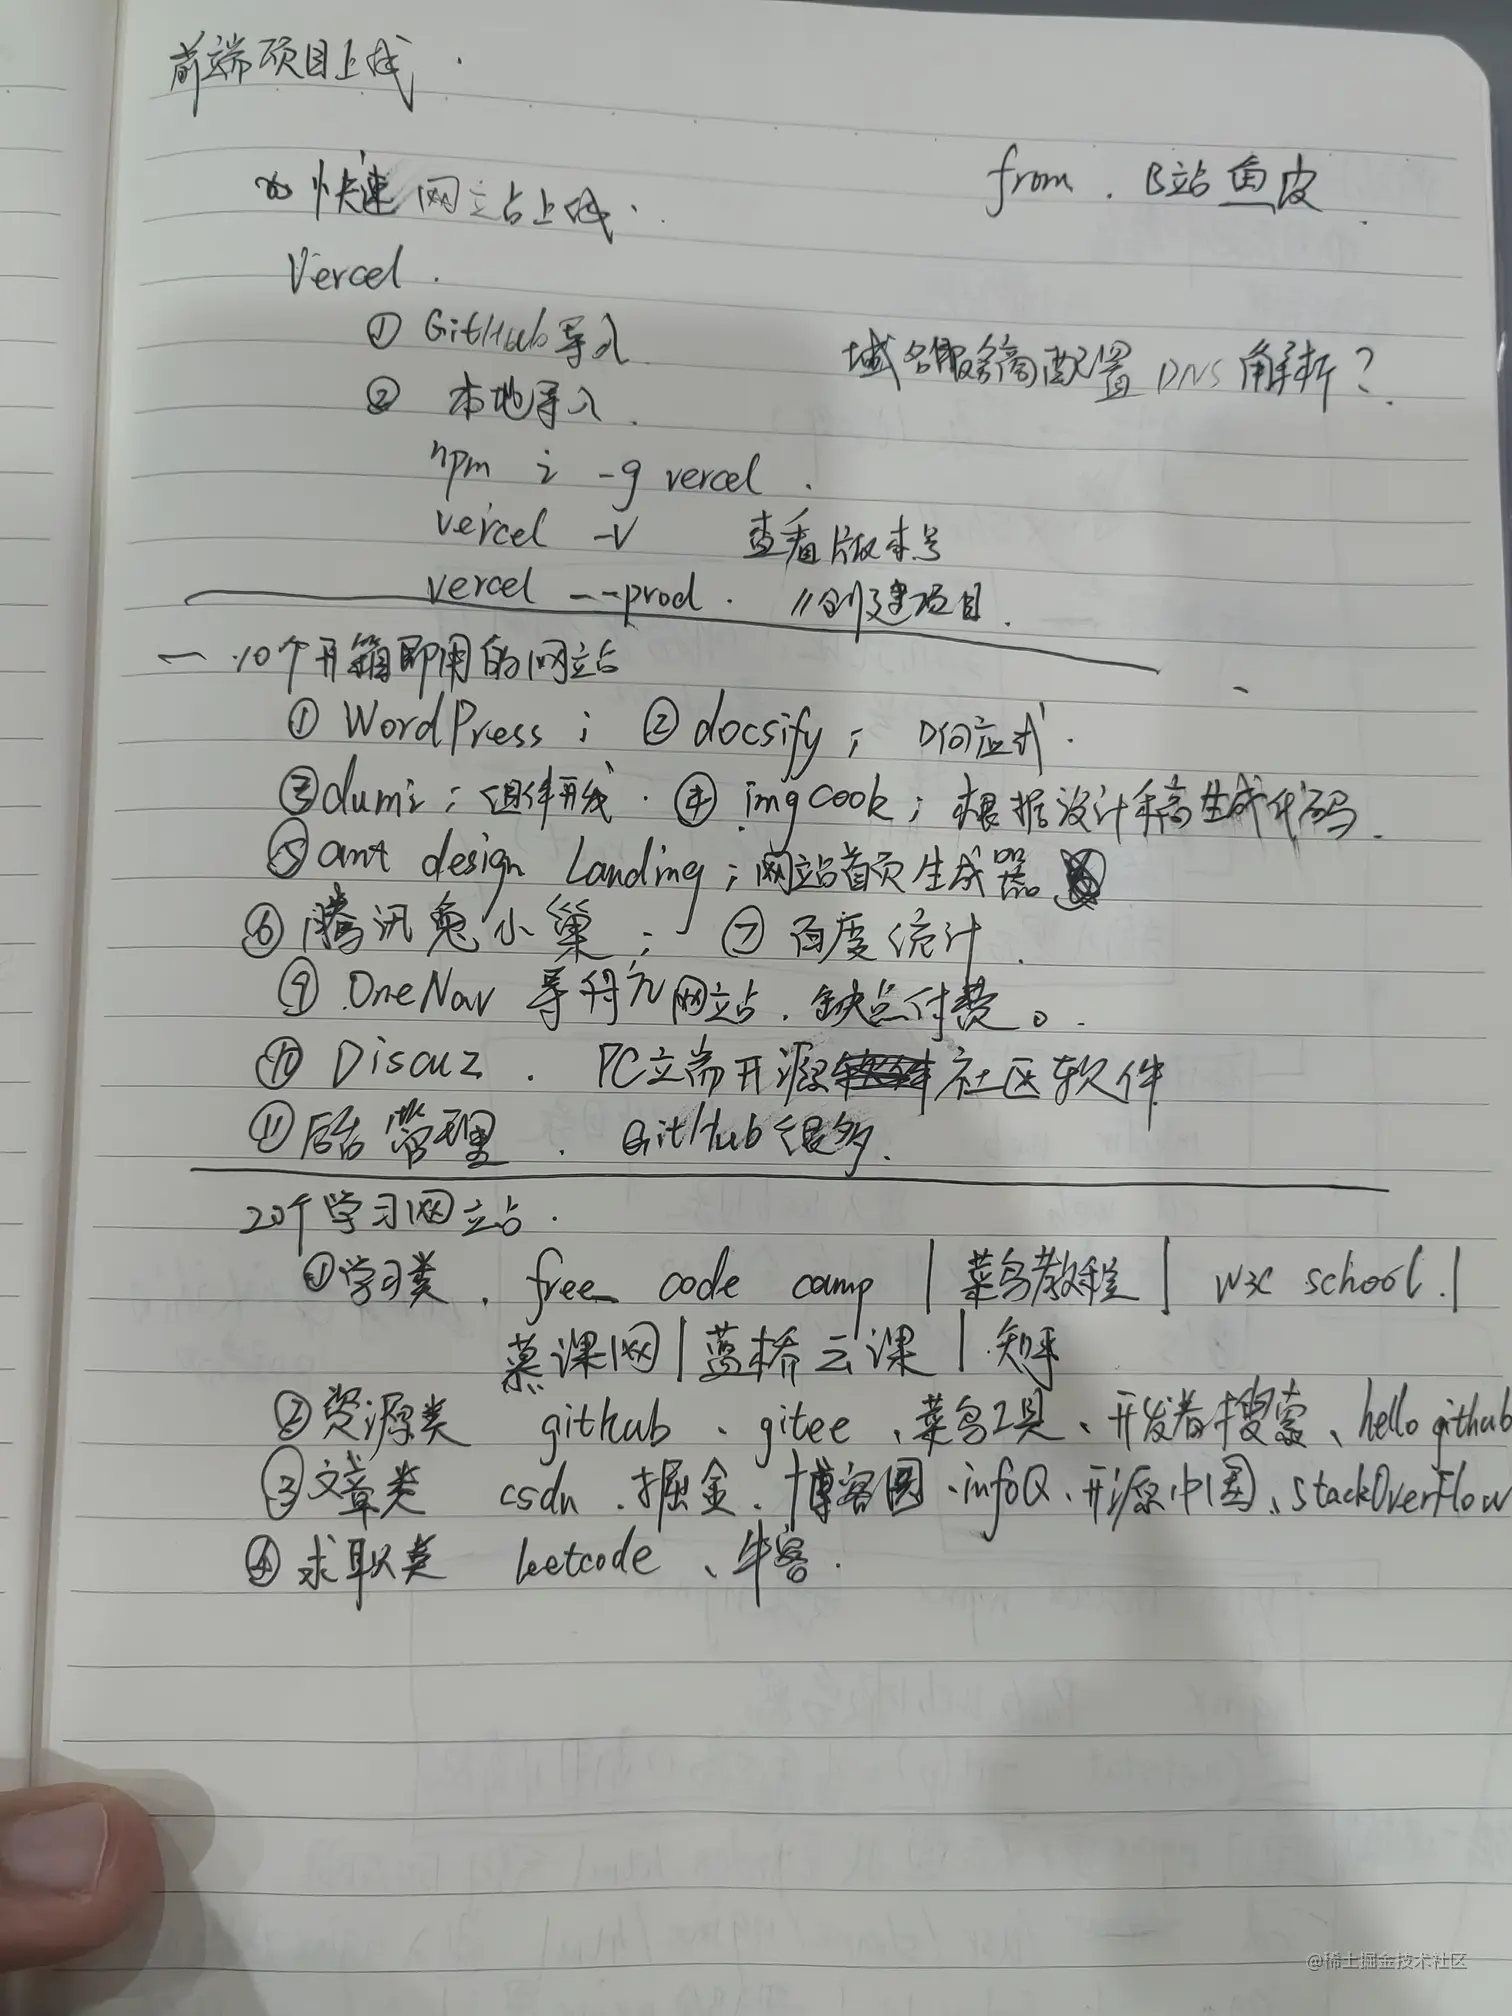 前端项目上线.
快速网站上线.
from. B站鱼皮
Vercel.
① GitHub导入
域名服务商配置 DNS 解析?
② 本地导入.
npm i -g vercel.
vercel -V 查看版本号
vercel --prod. //创建项目.
一 10个开箱即用的网站
① WordPress; ② docsify; 响应式.
③dumi; 组件开线. ④ imgcook; 根据设计稿生成代码.
⑤ant design Landing; 网站首页生成器
⑥腾讯兔小巢; ⑦ 百度统计.
⑨ OneNav 导航网站. 缺点付费。
⑩ Discuz. PC端开源社区软件
⑪后台管理. GitHub很多.
20个学习网站.
①学习类. free code camp | 菜鸟教程 | w3c school.|
慕课网|蓝桥云课 | 知乎
②资源类 github、gitee、菜鸟工具、开发者搜索、hello github
③文章类 csdn.掘金.博客圆.infoQ、开源中国、stackOverFlow
④求职类 leetcode、牛客.
@稀土掘金技术社区